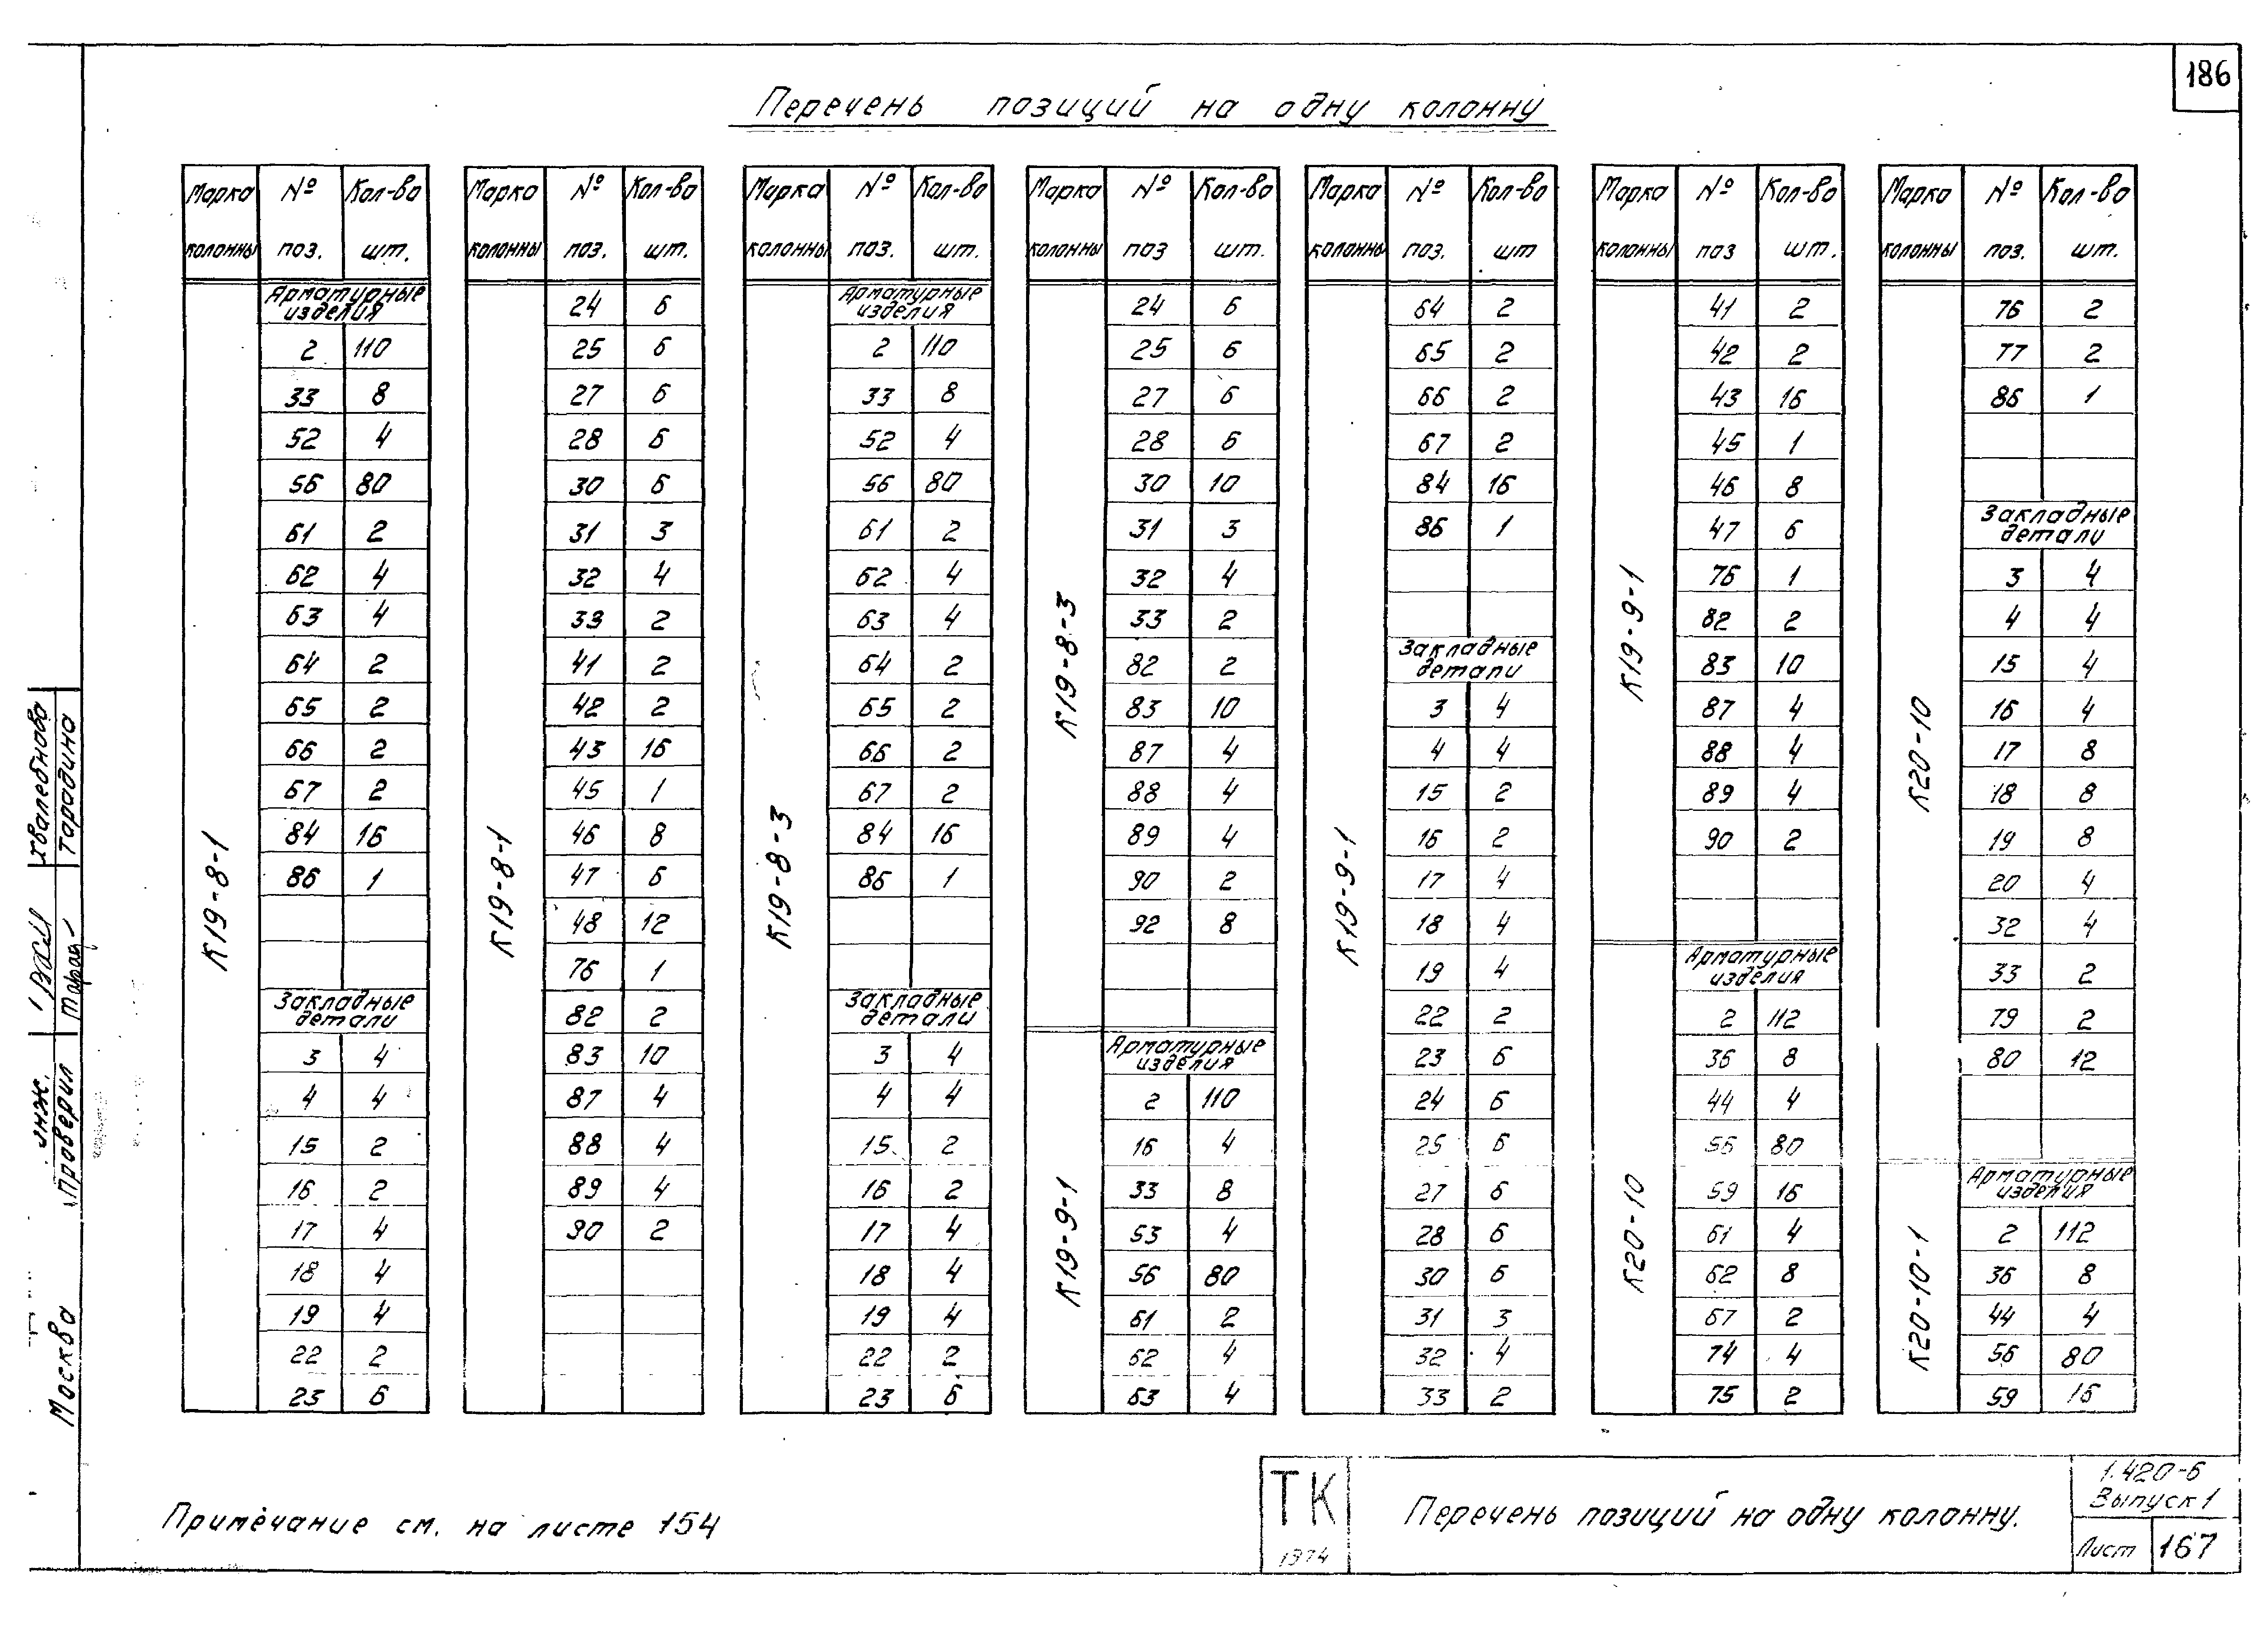 186
Перечень позиций на одну колонну
Марка колонны № поз. Кол-во шт.
К19-8-1
Арматурные изделия
2 110
33 8
52 4
56 80
61 2
62 4
63 4
64 2
65 2
66 2
67 2
84 16
86 1
Закладные детали
3 4
4 4
15 2
16 2
17 4
18 4
19 4
22 2
23 6
Марка колонны № поз. Кол-во шт.
К19-8-1
24 6
25 6
27 6
28 6
30 6
31 3
32 4
33 2
41 2
42 2
43 16
45 1
46 8
47 6
48 12
76 1
82 2
83 10
87 4
88 4
89 4
90 2
Марка колонны № поз. Кол-во шт.
К19-8-3
Арматурные изделия
2 110
33 8
52 4
56 80
61 2
62 4
63 4
64 2
65 2
66 2
67 2
84 16
86 1
Закладные детали
3 4
4 4
15 2
16 2
17 4
18 4
19 4
22 2
23 6
Марка колонны № поз Кол-во шт.
К19-8-3
24 6
25 6
27 6
28 6
30 10
31 3
32 4
33 2
82 2
83 10
87 4
88 4
89 4
90 2
92 8
К19-9-1
Арматурные изделия
2 110
16 4
33 8
53 4
56 80
61 2
62 4
63 4
Марка колонны № поз. Кол-во шт
К19-9-1
64 2
65 2
66 2
67 2
84 16
86 1
Закладные детали
3 4
4 4
15 2
16 2
17 4
18 4
19 4
22 2
23 6
24 6
25 6
27 6
28 6
30 6
31 3
32 4
33 2
Марка колонны № поз Кол-во шт.
К19-9-1
41 2
42 2
43 16
45 1
46 8
47 6
76 1
82 2
83 10
87 4
88 4
89 4
90 2
К20-10
Арматурные изделия
2 112
36 8
44 4
56 80
59 16
61 4
62 8
67 2
74 4
75 2
Марка колонны № поз. Кол-во шт.
К20-10
76 2
77 2
86 1
Закладные детали
3 4
4 4
15 4
16 4
17 8
18 8
19 8
20 4
32 4
33 2
79 2
80 12
К20-10-1
Арматурные изделия
2 112
36 8
44 4
56 80
59 16
Хвалебнова
Тарадина
инж.
Проверил
Москва
Примечание см. на листе 154
ТК
1974
Перечень позиций на одну колонну.
1.420-6
Выпуск 1
Лист 167